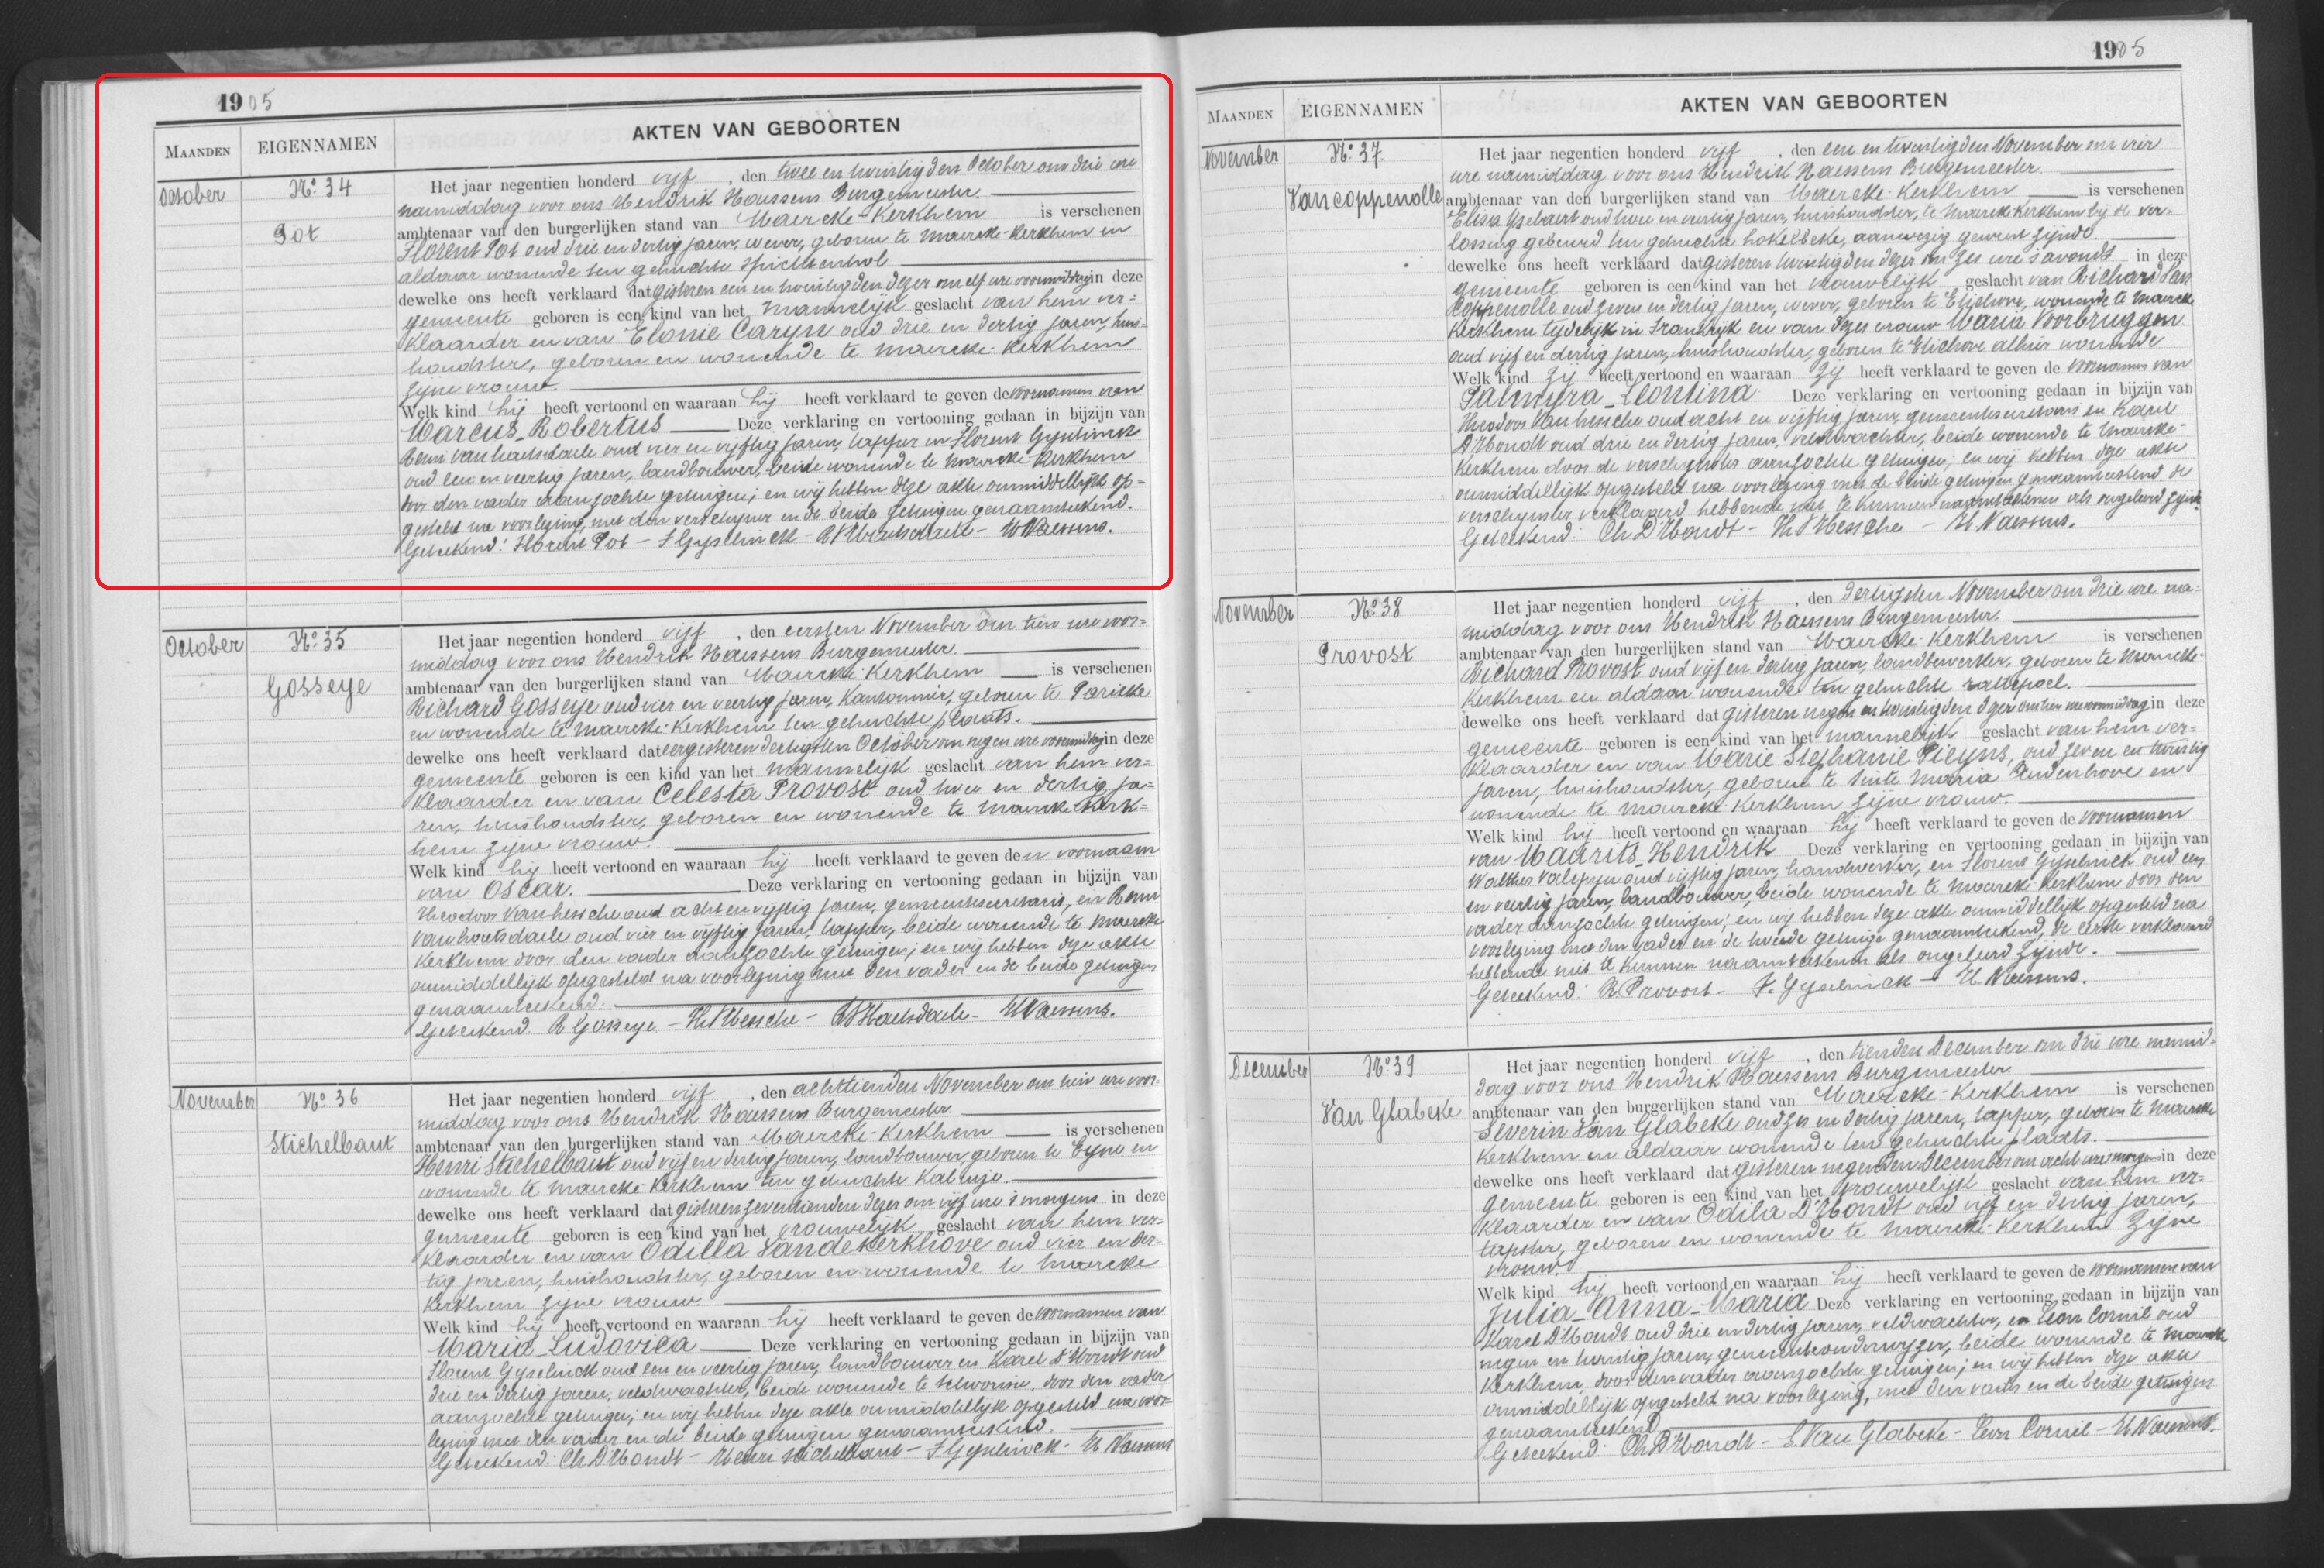 1905
MAANDEN EIGENNAMEN AKTEN VAN GEBOORTEN
October
No. 34
Pot
Het jaar negentien honderd vijf, den twee en twintigsten October om drie ure
namiddag voor ons Hendrik Haessens Burgemeester.
ambtenaar van den burgerlijken stand van Maercke-Kerkhem is verschenen
Florent Pot oud drie en dertig jaren, wever, geboren te Maercke-Kerkhem en
aldaar wonende ten gehuchte Spichtenhol
dewelke ons heeft verklaard dat gisteren een en twintigsten dezer om elf ure voormiddag in deze
gemeente geboren is een kind van het mannelijk geslacht van hem ver=
klaarder en van Elonie Caryn oud drie en dertig jaren, huis=
houdster, geboren en wonende te Maercke-Kerkhem
zijne vrouw.
Welk kind hij heeft vertoond en waaraan hij heeft verklaard te geven de voornamen van
Marcus-Robertus Deze verklaring en vertooning gedaan in bijzijn van
Remi Vanhaelsdaele oud vier en vijftig jaren, tapper en Florent Gyselinck
oud een en veertig jaren, landbouwer, beide wonende te Maercke-Kerkhem
door den vader aanzochte getuigen; en wij hebben deze akte onmiddellijk op=
gesteld na voorlezing, met den verschijner en de beide getuigen genaamteekend.
Geteekend: Florent Pot - F Gyselinck - - H Haessens.
October
No. 35
Gosseye
Het jaar negentien honderd vijf, den eersten November om tien ure voor=
middag voor ons Hendrik Haessens Burgemeester.
ambtenaar van den burgerlijken stand van Maercke-Kerkhem is verschenen
Richard Gosseye oud vier en veertig jaren, kantonnier, geboren te Paricke
en wonende te Maercke-Kerkhem ten gehuchte plaats.
dewelke ons heeft verklaard dat eergisteren dertigsten October om negen ure voormiddag in deze
gemeente geboren is een kind van het mannelijk geslacht van hem ver=
klaarder en van Celesta Provost oud twee en dertig ja=
ren, huishoudster, geboren en wonende te Maercke Kerk=
hem zijne vrouw.
Welk kind hij heeft vertoond en waaraan hij heeft verklaard te geven den voornaam
van Oscar. Deze verklaring en vertooning gedaan in bijzijn van
Theodoor Vanhessche oud acht en vijftig jaren, gemeentesecretaris, en Remi
Vanhaelsdaele oud vier en vijftig jaren, tapper, beide wonende te Maercke
Kerkhem door den vader aanzochte getuigen; en wij hebben deze akte
onmiddellijk opgesteld na voorlezing met den vader en de beide getuigen
genaamteekend.
Geteekend. R Gosseye - - - H Haessens.
November
No. 36
Stichelbaut
Het jaar negentien honderd vijf, den achttienden November om tien ure voor=
middag voor ons Hendrik Haessens Burgemeester.
ambtenaar van den burgerlijken stand van Maercke-Kerkhem is verschenen
Henri Stichelbaut oud vijf en dertig jaren, landbouwer, geboren te Eyne en
wonende te Maercke-Kerkhem ten gehuchte
dewelke ons heeft verklaard dat gisteren zeventienden dezer om vijf ure 's morgens in deze
gemeente geboren is een kind van het vrouwelijk geslacht van hem ver=
klaarder en van Odilla Vandekerkhove oud vier en der=
tig jaren, huishoudster, geboren en wonende te Maercke
Kerkhem zijne vrouw.
Welk kind hij heeft vertoond en waaraan hij heeft verklaard te geven de voornamen van
Maria-Ludovica Deze verklaring en vertooning gedaan in bijzijn van
Florent Gyselinck oud een en veertig jaren, landbouwer en Karel D'Hondt oud
drie en dertig jaren, veldwachter, beide wonende te door den vader
aanzochte getuigen; en wij hebben deze akte onmiddellijk opgesteld na voor=
lezing met den vader en de beide getuigen genaamteekend.
Geteekend: Ch D'Hondt - Henri Stichelbaut - F Gyselinck - H Haessens
1905
MAANDEN EIGENNAMEN AKTEN VAN GEBOORTEN
November
No. 37
Vancoppenolle
Het jaar negentien honderd vijf, den een en twintigsten November om vier
ure namiddag voor ons Hendrik Haessens Burgemeester.
ambtenaar van den burgerlijken stand van Maercke-Kerkhem is verschenen
Elisa Ysebaert oud twee en veertig jaren, huishoudster, te Maercke-Kerkhem bij de ver=
lossing gebeurd ten gehuchte hokelbeke, aanwezig geweest zijnde.
dewelke ons heeft verklaard dat gisteren twintigsten dezer om zes ure 's avonds in deze
gemeente geboren is een kind van het vrouwelijk geslacht van Richard Van
Coppenolle oud zeven en dertig jaren, wever, geboren te Etichove, wonende te Maercke
Kerkhem tijdelijk in Frankrijk en van dezes vrouw Maria Voorbruggen
oud vijf en dertig jaren, huishoudster, geboren te Etichove alhier wonende
Welk kind zij heeft vertoond en waaraan zij heeft verklaard te geven de voornamen van
Palmyra-Leontina Deze verklaring en vertooning gedaan in bijzijn van
Theodoor Vanhessche oud acht en vijftig jaren, gemeentesecretaris en Karel
D'Hondt oud drie en dertig jaren, veldwachter, beide wonende te Maercke-
Kerkhem door de verschijnster aanzochte getuigen; en wij hebben deze akte
onmiddellijk opgesteld na voorlezing met de beide getuigen genaamteekend de
verschijnster verklaard hebbende niet te kunnen naamteekenen als ongeleerd zijnde.
Geteekend: Ch D'Hondt - - H Haessens.
November
No. 38
Provost
Het jaar negentien honderd vijf, den dertigsten November om drie ure na=
middag voor ons Hendrik Haessens Burgemeester.
ambtenaar van den burgerlijken stand van Maercke-Kerkhem is verschenen
Richard Provost oud vijf en dertig jaren, landbewerker, geboren te Maercke-
Kerkhem en aldaar wonende ten gehuchte rattepoel.
dewelke ons heeft verklaard dat gisteren negen en twintigsten dezer om tien ure voormiddag in deze
gemeente geboren is een kind van het mannelijk geslacht van hem ver=
klaarder en van Marie Stephanie Pieyns, oud zeven en twintig
jaren, huishoudster, geboren te Sinte Maria Audenhove en
wonende te Maercke-Kerkhem zijne vrouw.
Welk kind hij heeft vertoond en waaraan hij heeft verklaard te geven de voornamen
van Maurits-Hendrik Deze verklaring en vertooning gedaan in bijzijn van
Walther oud vijftig jaren, handwerker, en Florent Gyselinck oud een
en veertig jaren, landbouwer, beide wonende te Maercke-Kerkhem door den
vader aanzochte getuigen; en wij hebben deze akte onmiddellijk opgesteld na
voorlezing met den vader en de tweede getuige genaamteekend, de eerste verklaard
hebbende niet te kunnen naamteekenen als ongeleerd zijnde.
Geteekend: R Provost - F. Gyselinck - H Haessens.
December
No. 39
Van Glabeke
Het jaar negentien honderd vijf, den tienden December om drie ure namid=
dag voor ons Hendrik Haessens Burgemeester
ambtenaar van den burgerlijken stand van Maercke-Kerkhem is verschenen
Severin Van Glabeke oud zes en dertig jaren, tapper, geboren te Maercke
Kerkhem en aldaar wonende ten gehuchte plaats.
dewelke ons heeft verklaard dat gisteren negenden December om acht ure 's morgens in deze
gemeente geboren is een kind van het vrouwelijk geslacht van hem ver=
klaarder en van Odila D'Hondt oud vijf en dertig jaren,
tapster, geboren en wonende te Maercke-Kerkhem zijne
vrouw.
Welk kind hij heeft vertoond en waaraan hij heeft verklaard te geven de voornamen van
Julia-Anna-Maria Deze verklaring en vertooning gedaan in bijzijn van
Karel D'Hondt oud drie en dertig jaren, veldwachter, en Leon Cornil oud
negen en twintig jaren, gemeenteonderwijzer, beide wonende te Maercke
Kerkhem, door den vader aanzochte getuigen; en wij hebben deze akte
onmiddellijk opgesteld na voorlezing, met den vader en de beide getuigen
genaamteekend
Geteekend: Ch D'Hondt - S Van Glabeke - Leon Cornil - H Haessens.